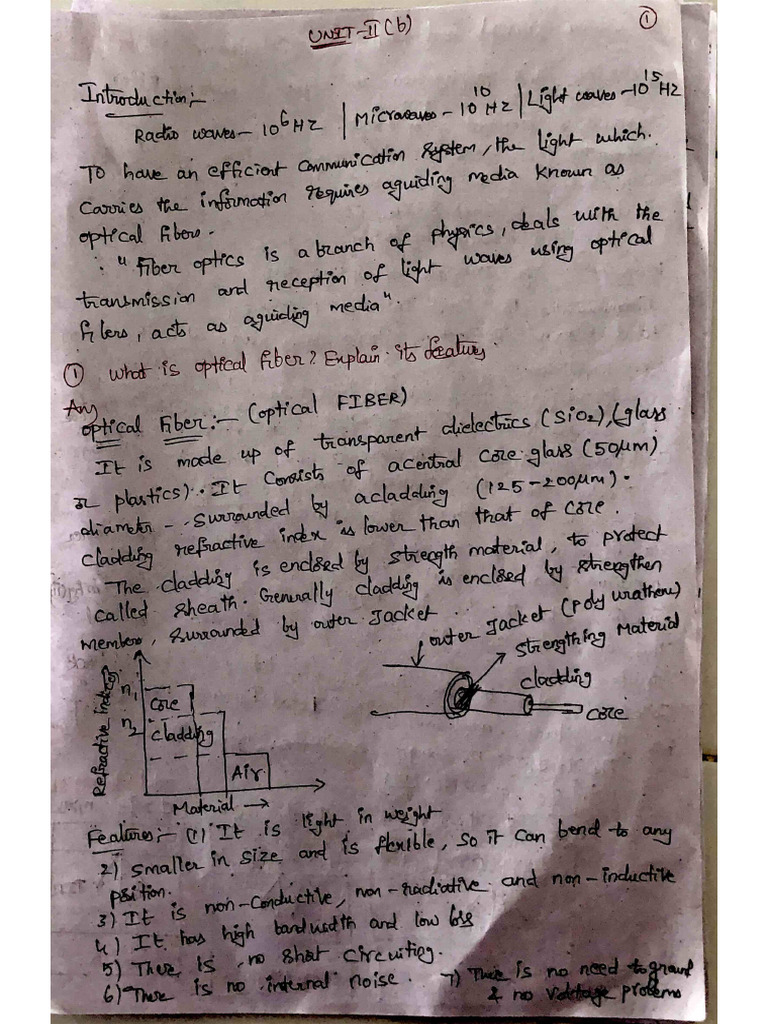 UNIT-II (b)
1
Introduction:-
Radio waves - 10^6 HZ | Microwaves - 10^10 HZ | Light waves - 10^15 HZ
To have an efficient communication system, the light which.
Carries the information requires aguiding media known as
optical fibers.
∴ "Fiber optics is a branch of physics, deals with the
transmission and reception of light waves using optical
fibers, acts as aguiding media".
① What is optical fiber? Explain its features.
Ans
optical Fiber:- (optical FIBER)
It is made up of transparent dielectrics (SiO2), (glass
or plastics). It consists of acentral core glass (50μm)
diameter - surrounded by acladding (125-200μm).
cladding refractive index is lower than that of core.
The cladding is enclosed by strength material, to protect
called sheath. Generally cladding is enclosed by strengthen
members, surrounded by outer Jacket.
outer Jacket (Poly urathene)
strengthing Material
cladding
core
Refractive index
n1
core
n2
cladding
Air
Material →
Features:- (1) It is light in weight
2) smaller in size and is flexible, so it can bend to any
position.
3) It is non-conductive, non-radiative and non-inductive
4) It has high bandwidth and low loss
5) There is no shot circuiting.
6) There is no internal noise.
7) There is no need to ground
& no voltage problems